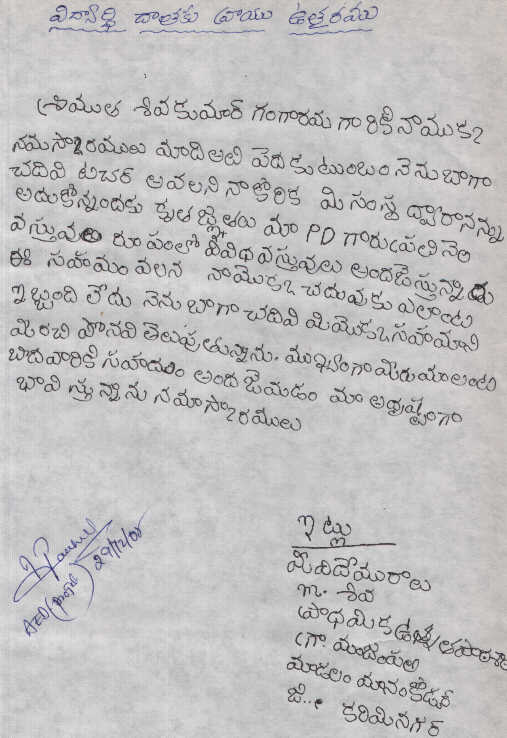 విద్యార్థి దాతకు వ్రాయు ఉత్తరము
శ్రీముత శివకుమార్ గంగారమ గారికి నాముక్క
నమస్కారములు మాది అతి పెద కుటుంబం నెను బాగా
చదివి టిచర్ అవలని నా కోరిక మి సంస్థ ద్వారా నన్ను
అదుకొన్నందకు కృతజ్ఞతలు మా PD గారు ప్రతి నెల
వస్తువుల రూపంలో వివిధ వస్తువులు అందజెస్తున్నారు
ఈ సహయం వలన నామొక్క చదువుకు ఎలాంటి
ఇబ్బంది లేదు నెను బాగా చదివి మిమొక్క సహయాని
మరిచి పోనని తెలుపుతున్నాను. ముఖ్యంగా మిరు మాలాంటి
బిదవారికి సహయం అందజెయడం మా అధృష్టంగా
భావిస్తున్నాను నమాస్కారములు
ఇట్లు
మి విదెయురాలు
m. శివ
ప్రాధమిక ఉన్నత పాఠశాల
గ్రా. మంజంపల్లి
మండలం మానంకొడుర్
జి... కరిమినగర్
29/12/08